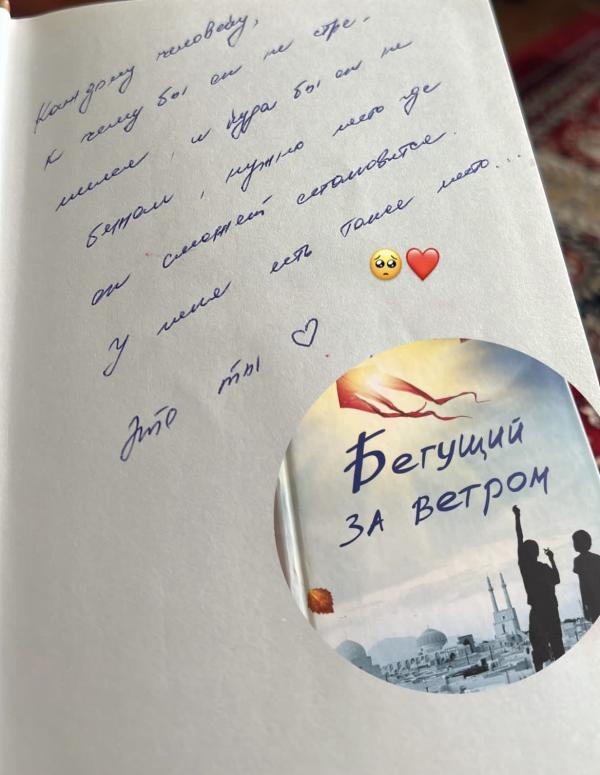 Каждому человеку,
к чему бы он не стре-
мился, и куда бы он не
бежал, нужно место где
он сможет остановится.
У меня есть такое место...
Это ты
Бегущий
за ветром